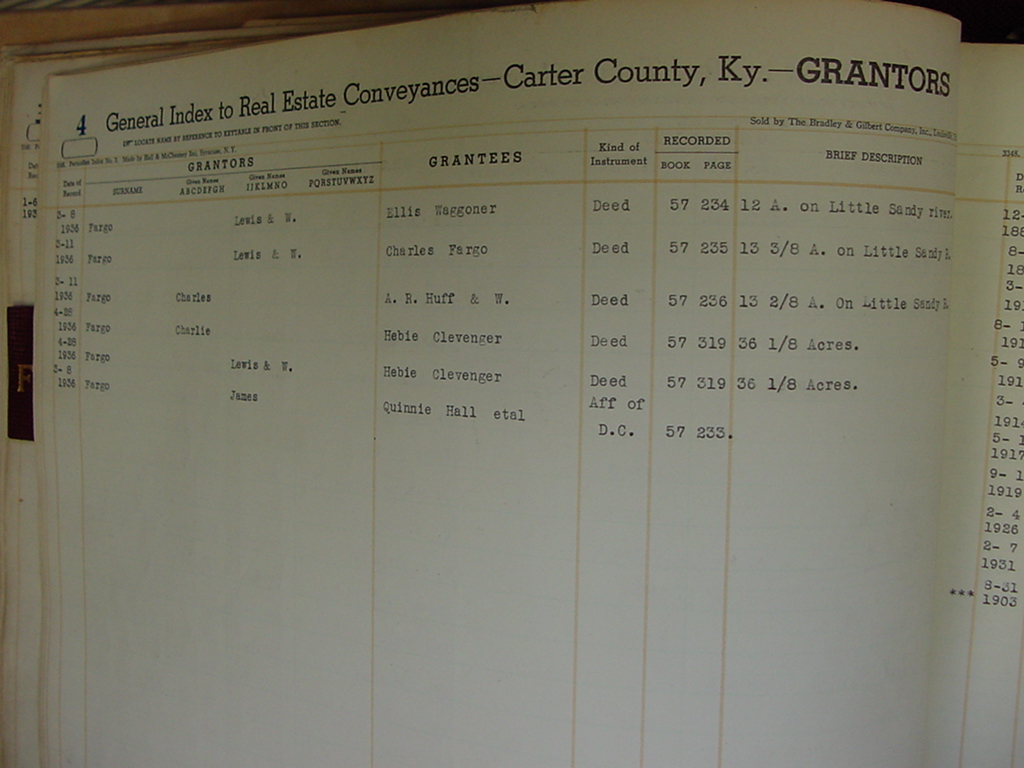 4 General Index to Real Estate Conveyances—Carter County, Ky.—GRANTORS
LOCATE NAME BY REFERENCE TO KEYTABLE IN FRONT OF THIS SECTION.
Sold by The Bradley & Gilbert Company, Inc.,
Made by Hall & McChesney Inc, Syracuse, N. Y.
Date of Record
GRANTORS
SURNAME
Given Names ABCDEFGH
Given Names IJKLMNO
Given Names PQRSTUVWXYZ
GRANTEES
Kind of Instrument
RECORDED
BOOK PAGE
BRIEF DESCRIPTION
3- 8
1936 Fargo Lewis & W. Ellis Waggoner Deed 57 234 12 A. on Little Sandy river.
3-11
1936 Fargo Lewis & W. Charles Fargo Deed 57 235 13 3/8 A. on Little Sandy R.
3- 11
1936 Fargo Charles A. R. Huff & W. Deed 57 236 13 2/8 A. On Little Sandy R.
4-28
1936 Fargo Charlie Hebie Clevenger Deed 57 319 36 1/8 Acres.
4-28
1936 Fargo Lewis & W. Hebie Clevenger Deed 57 319 36 1/8 Acres.
3- 8
1936 Fargo James Quinnie Hall etal Aff of
D.C. 57 233.
F
1-6
193
3348.
12-
188
8-
18
3-
191
8- 1
191
5- 9
191
3-
1914
5- 1
1917
9- 1
1919
2- 4
1926
2- 7
1931
*** 8-31
1903